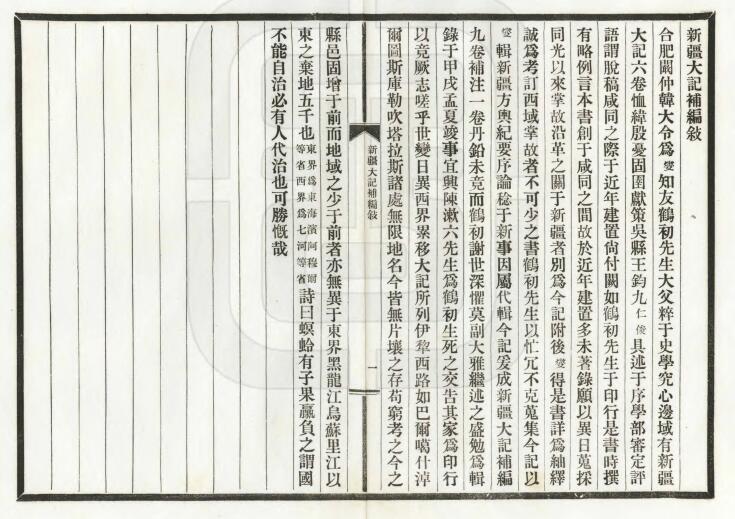 新疆大記補編敍
合肥闞仲韓大令爲燮知友鶴初先生大父粹于史學究心邊域有新疆
大記六卷恤緯殷憂固圉獻策吳縣王鈞九仁俊具述于序學部審定評
語謂脫稿咸同之際于近年建置尙付闕如鶴初先生于印行是書時撰
有略例言本書創于咸同之間故於近年建置多未著錄願以異日蒐採
同光以來掌故沿革之關于新疆者別爲今記附後燮得是書詳爲紬繹
誠爲考訂西域掌故者不可少之書鶴初先生以忙冗不克蒐集今記以
燮輯新疆方輿紀要序論稔于新事因屬代輯今記爰成新疆大記補編
九卷補注一卷丹鉛未竟而鶴初謝世深懼莫副大雅繼述之盛勉爲輯
錄于甲戌孟夏竣事宜興陳漱六先生爲鶴初生死之交告其家爲印行
以竟厥志嗟乎世變日異西界累移大記所列伊犂西路如巴爾噶什淖
爾圖斯庫勒吹塔拉斯諸處無限地名今皆無片壤之存苟窮考之今之
新疆大記補編敍
一
縣邑固增于前而地域之少于前者亦無異于東界黑龍江烏蘇里江以
東之棄地五千也東界爲東海濱阿穆爾等省西界爲七河等省詩曰螟蛉有子果蠃負之謂國
不能自治必有人代治也可勝慨哉